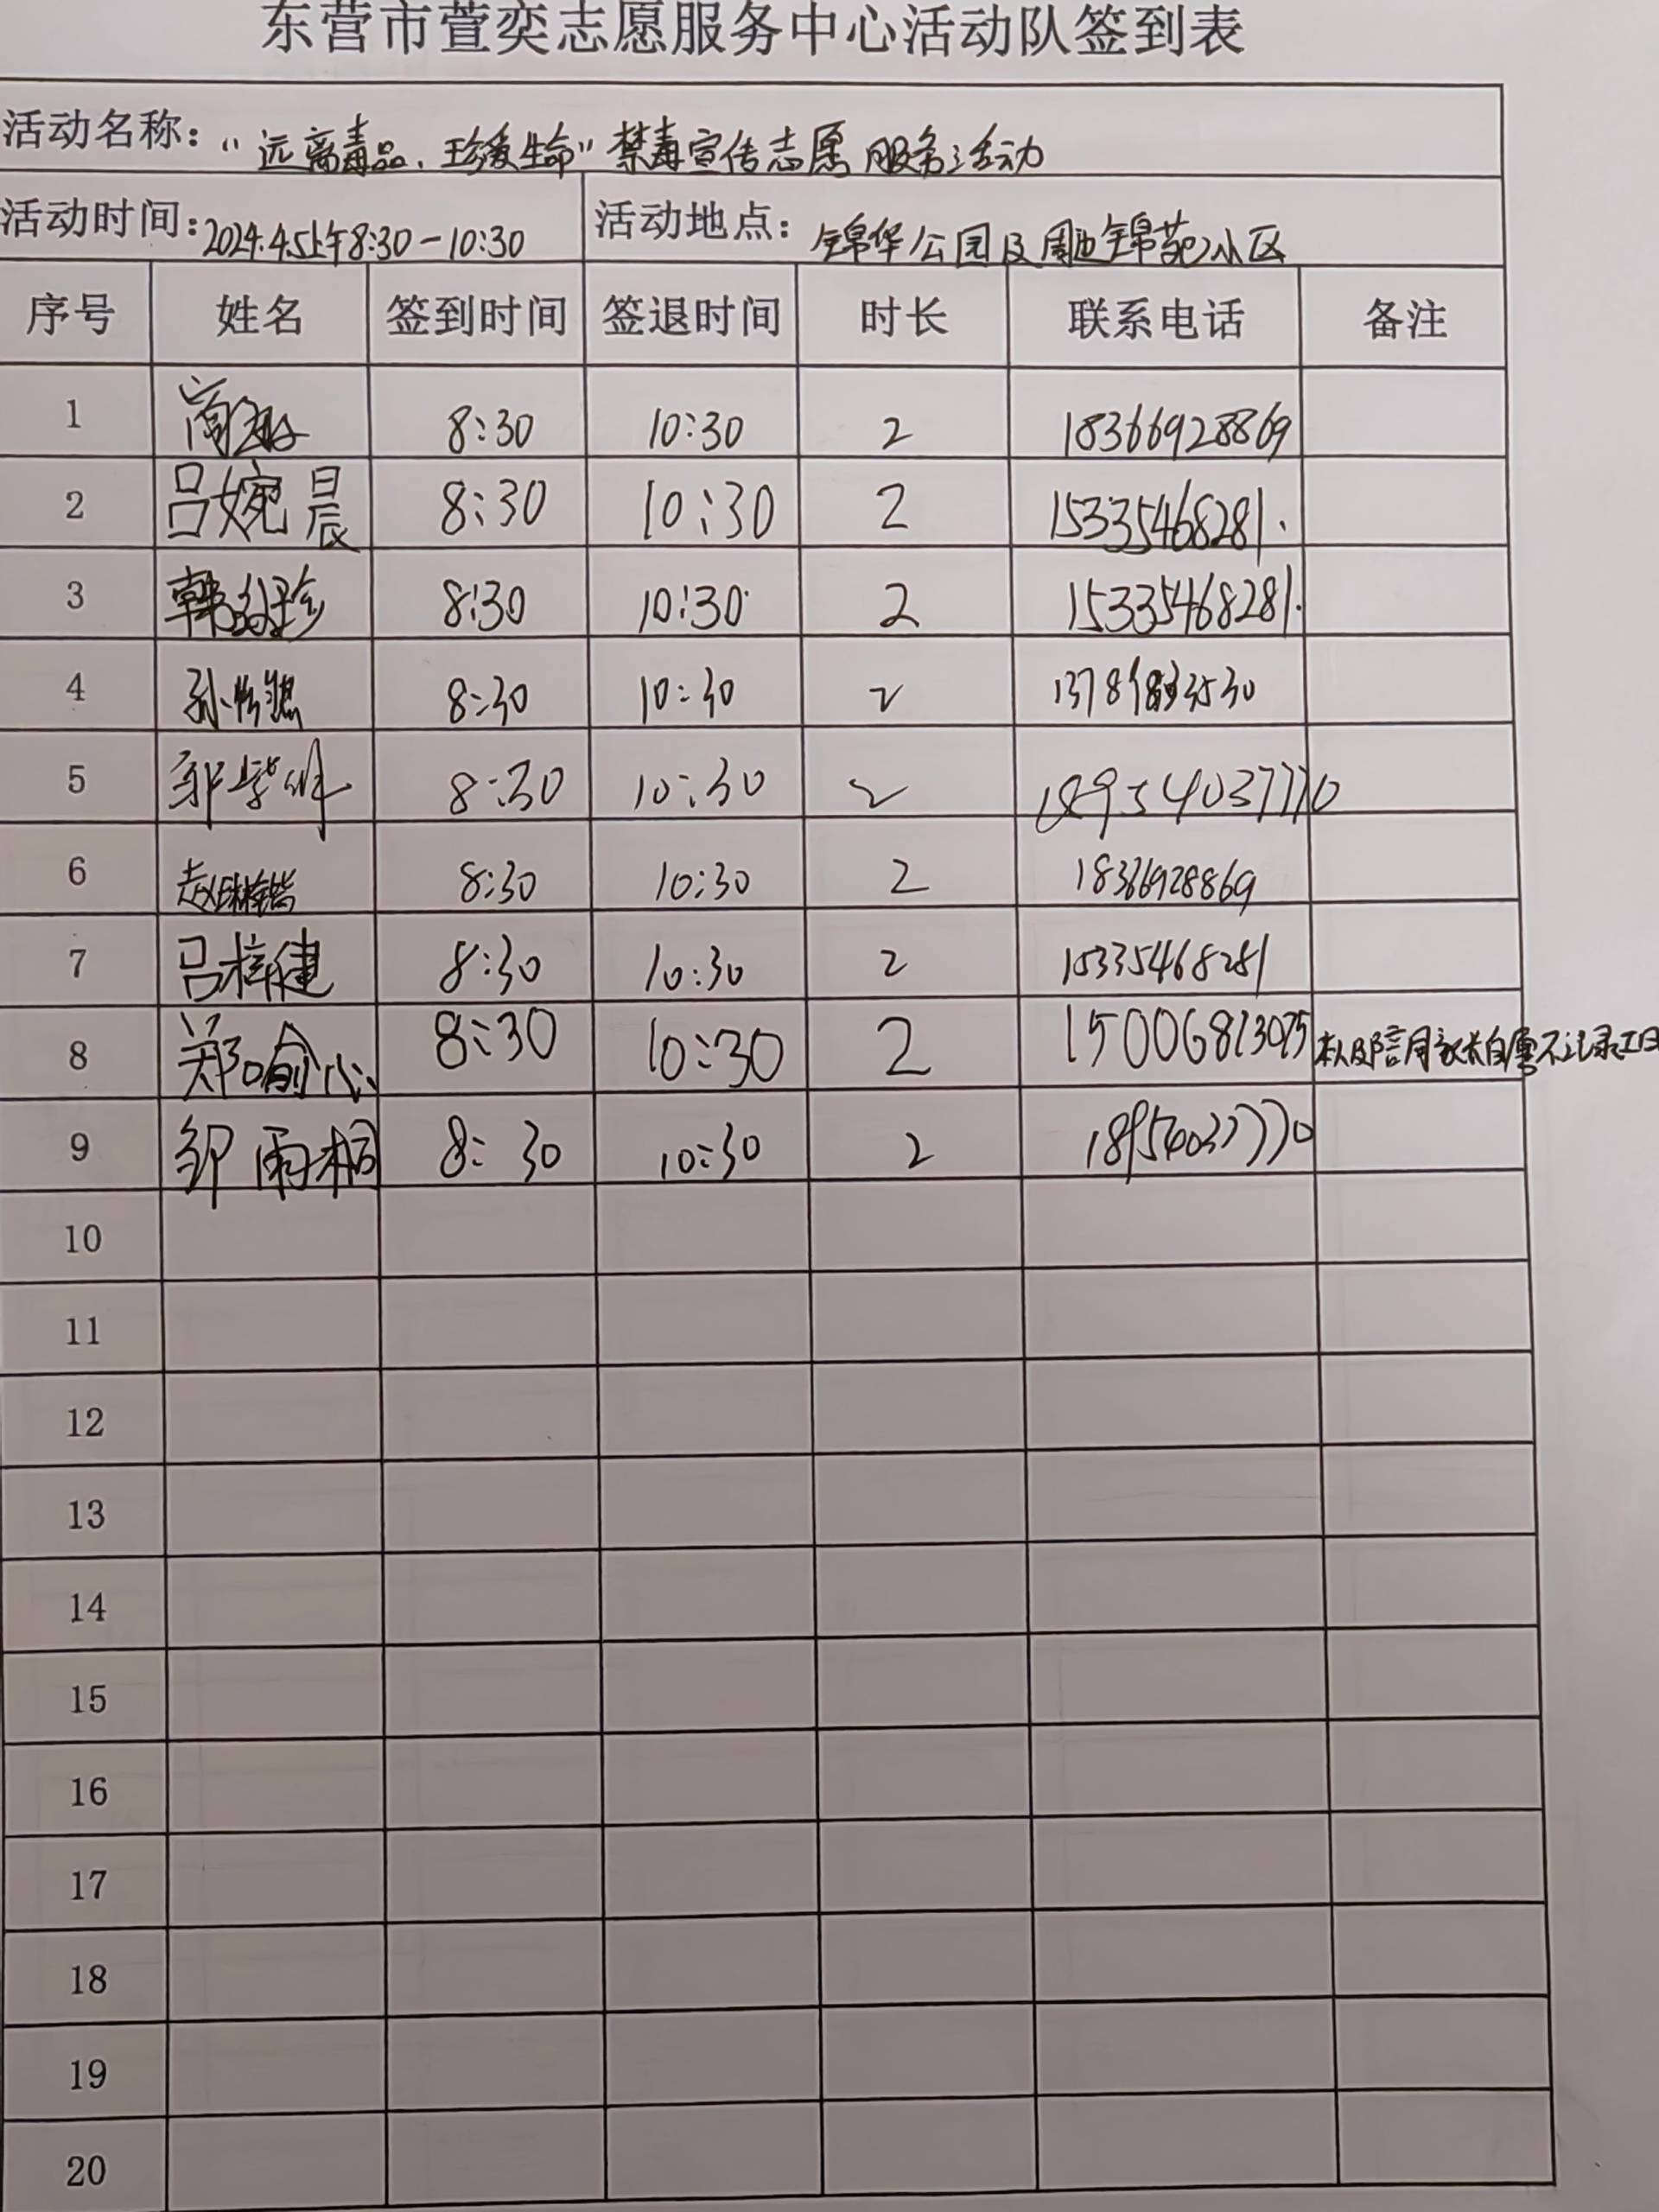 东营市萱奕志愿服务中心活动队签到表
活动名称："远离毒品、珍爱生命"禁毒宣传志愿服务活动
活动时间：2024.4.5上午8:30-10:30 活动地点：锦华公园及周边锦苑小区
序号 姓名 签到时间 签退时间 时长 联系电话 备注
1 8:30 10:30 2 18366928869
2 吕婉晨 8:30 10:30 2 15335468281.
3 韩 8:30 10:30 2 15335468281.
4 孙 8:30 10:30 2
5 邹紫 8:30 10:30 2 18954037770
6 赵 8:30 10:30 2 18366928869
7 吕梓健 8:30 10:30 2 15335468281
8 郑喻心 8:30 10:30 2 15006813075 本人及陪同家长自愿不记录工时
9 邹雨桐 8:30 10:30 2 18954037770
10
11
12
13
14
15
16
17
18
19
20